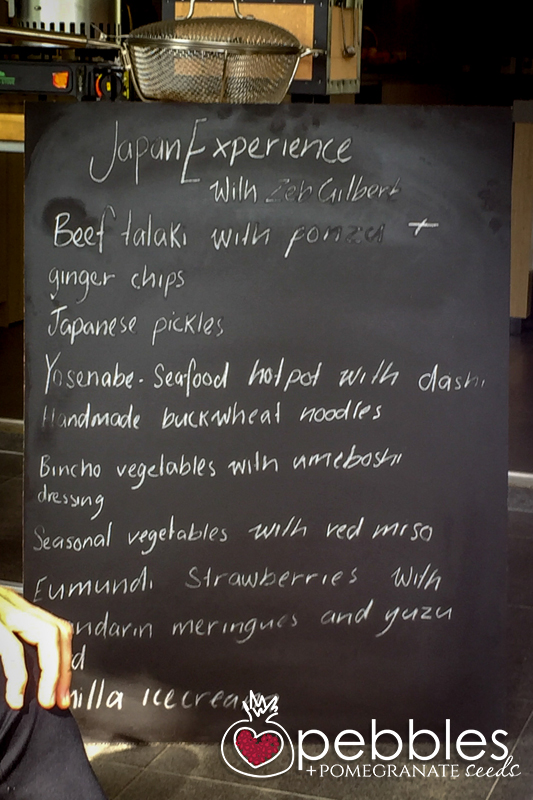 Japan Experience
with Zeb Gilbert
Beef talaki with ponzu +
ginger chips
Japanese pickles
Yosenabe - Seafood hotpot with dashi
Handmade buckwheat noodles
Bincho vegetables with umeboshi
dressing
Seasonal vegetables with red miso
Eumundi Strawberries with
ndarin meringues and yuzu
d
nilla icecream
pebbles
+POMEGRANATE seeds